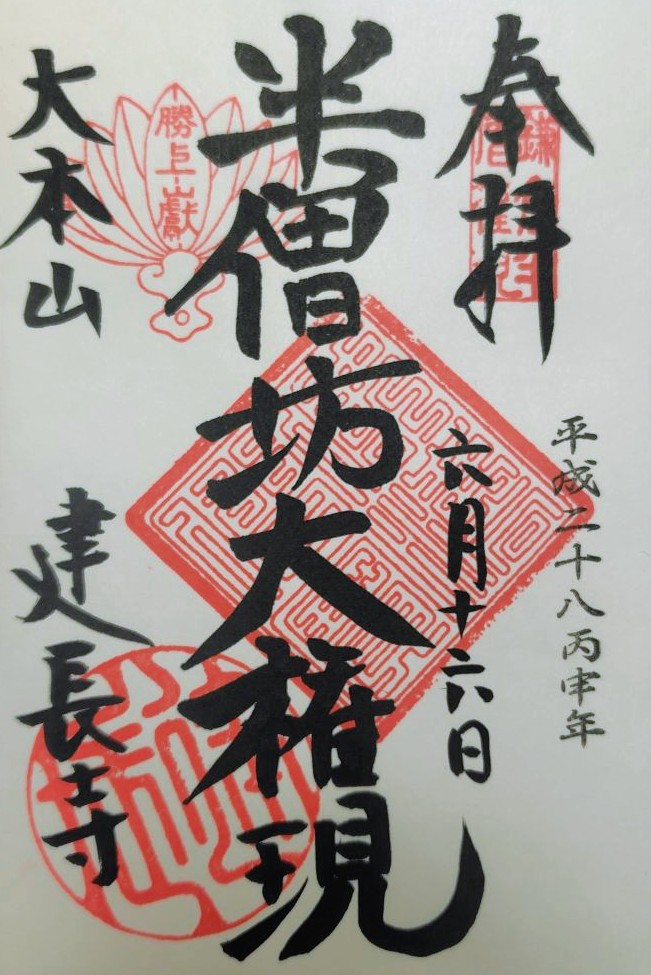 奉拝
平成二十八丙申年
六月十六日
半僧坊大権現
勝上嶽
大本山
建長寺